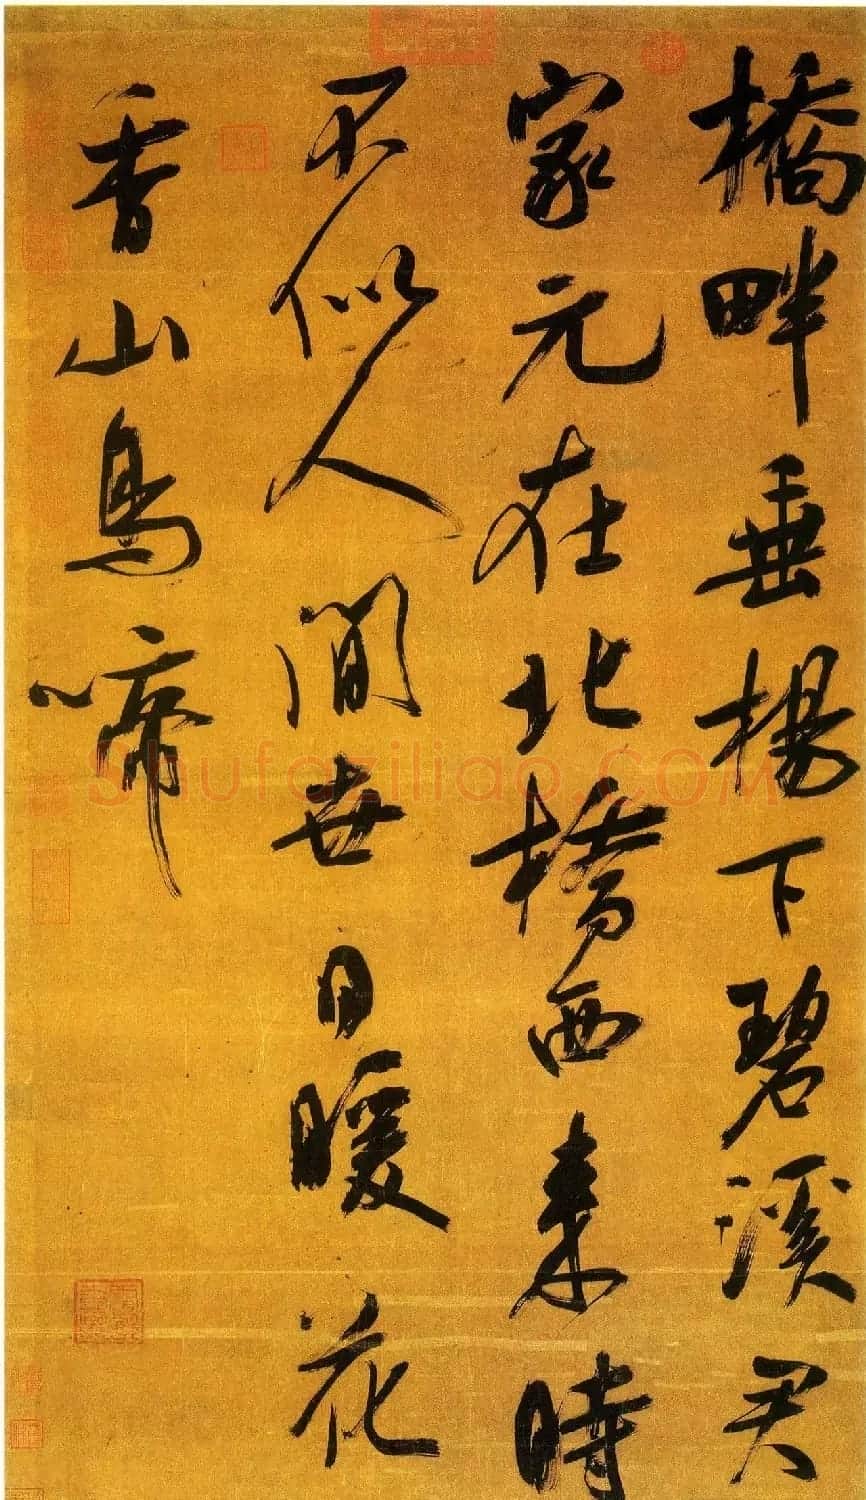 橋畔垂楊下碧溪君
家元在北橋西來時
不似人間世日暖花
香山鳥啼
shufaziliao.COM